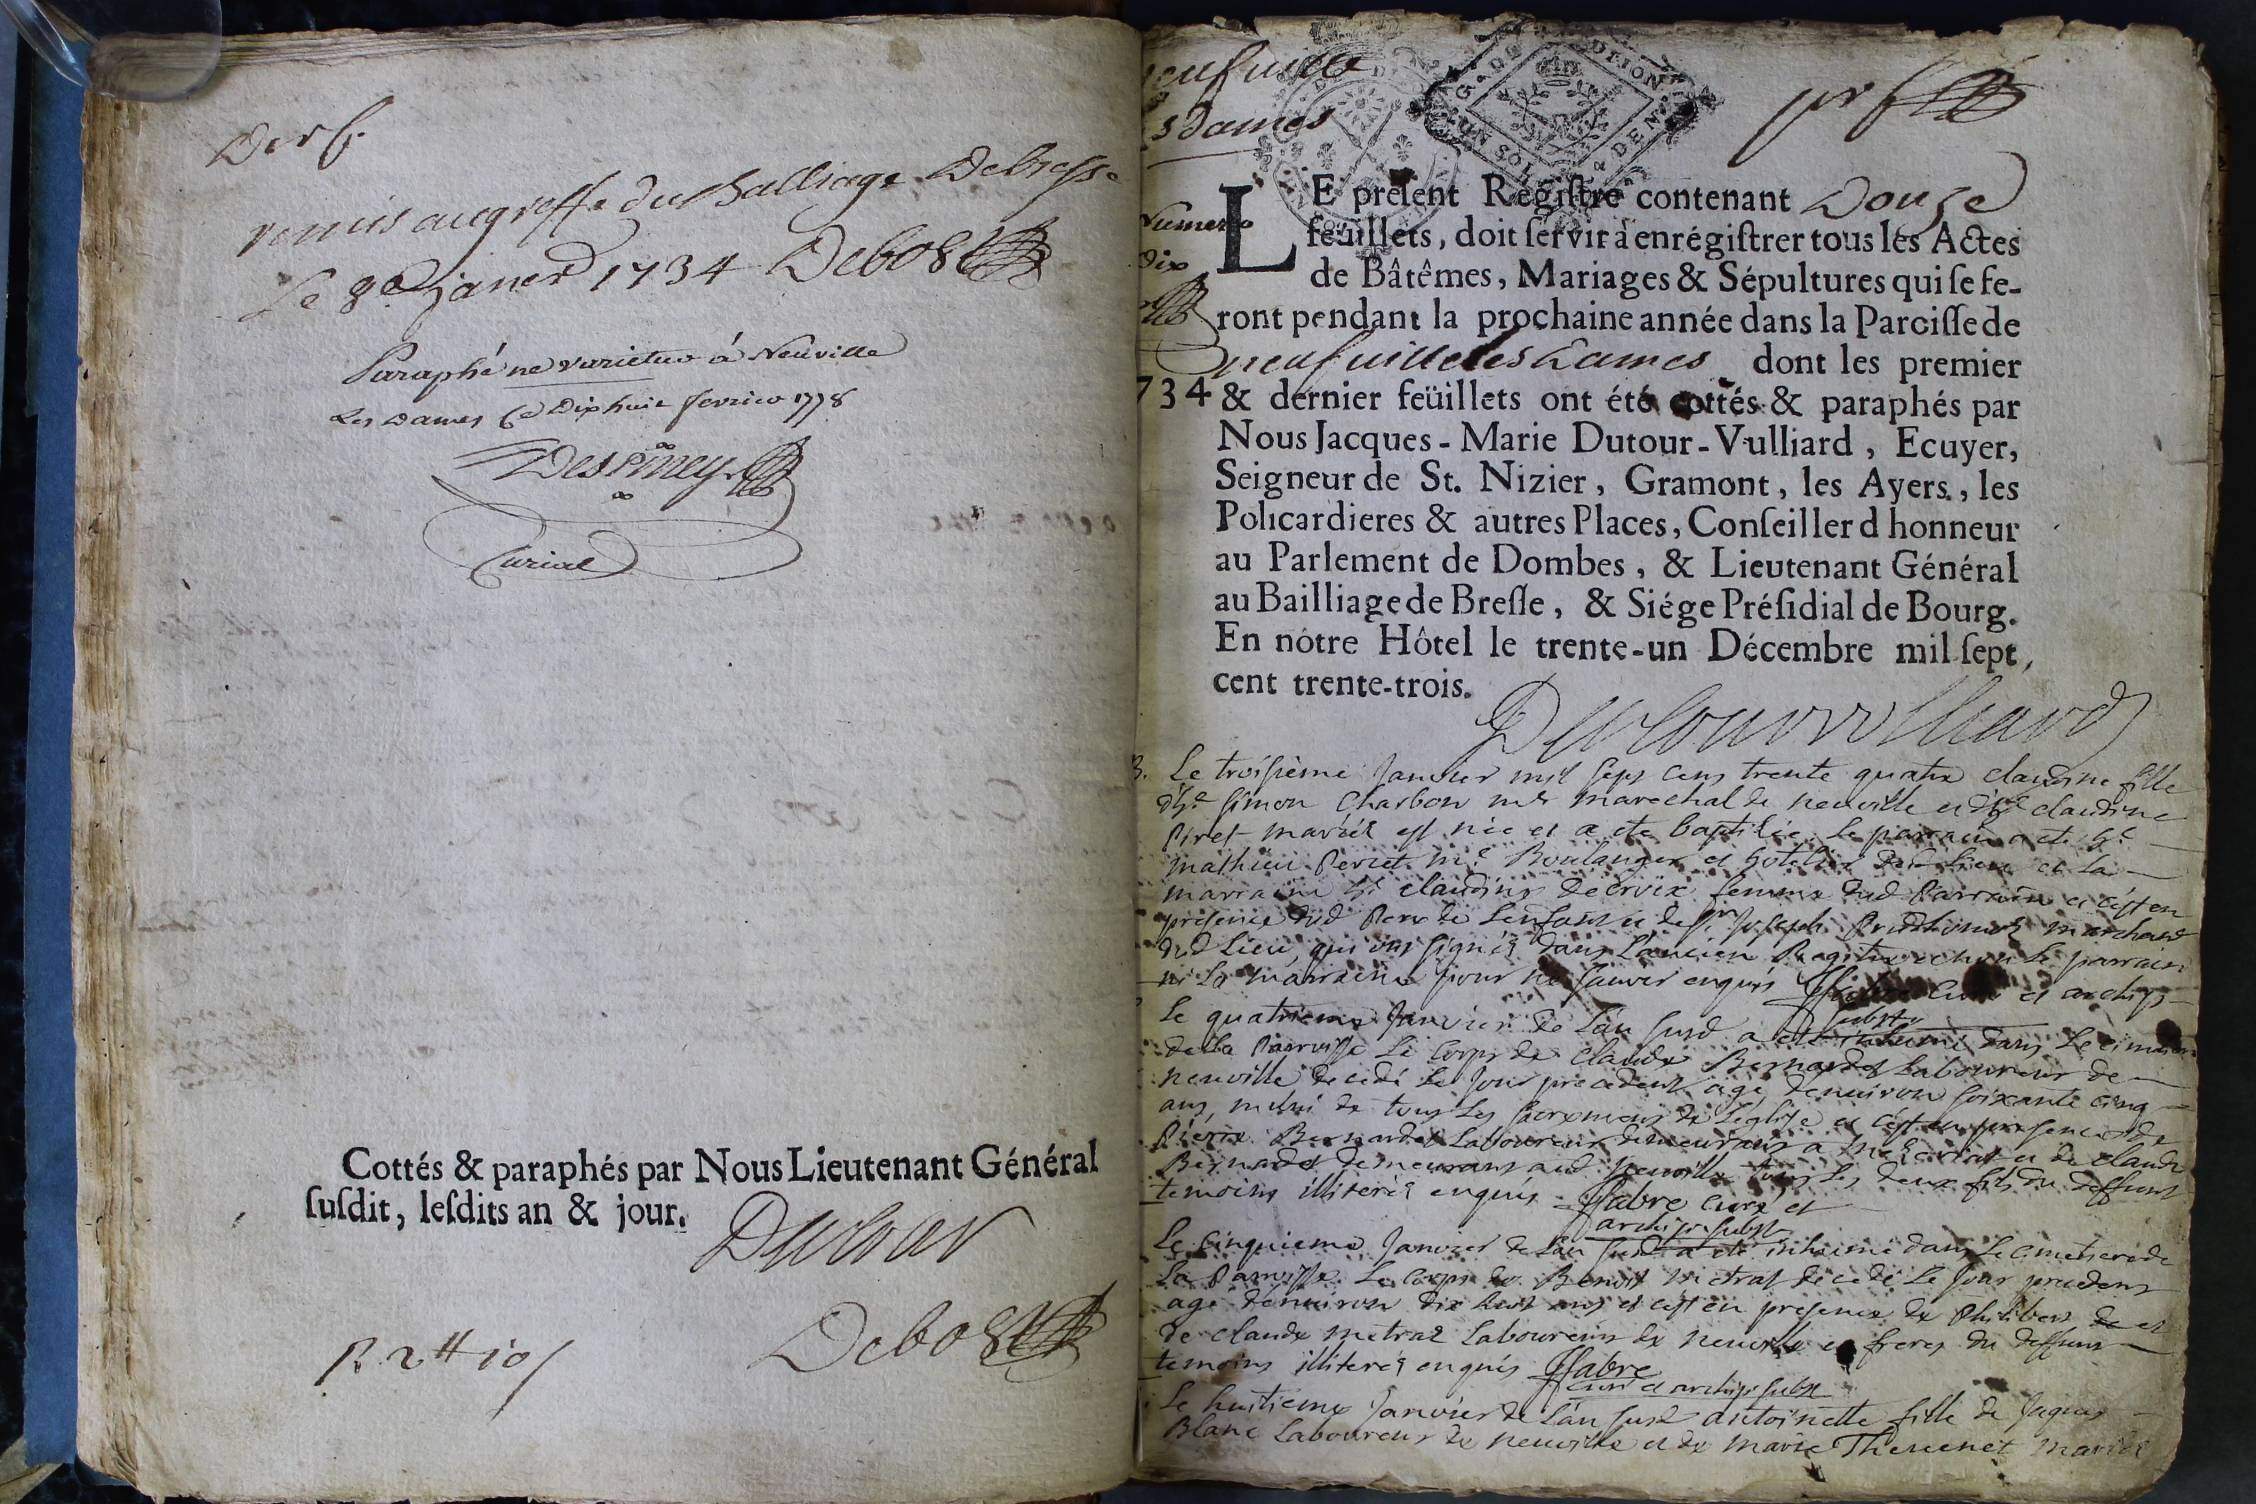 Derf.
remis au greffe du Balliage De bresse
Le 8e janer 1734 Debost
Paraphé ne varietur á Neuville
Les Dames Ce Dixhuit fevrier 1778
Despiney
Curial
Cottés & paraphés par Nous Lieutenant Général
ſuſdit, leſdits an & jour.
Dutour
Debost
R 2tt 10s
neufuille
s dames
GEN. DE DIJON
UN SOL
pr f
Numero
Dix
734
LE preſent Regiſtre contenant Douze
feüillets, doit ſervir à enrégiſtrer tous les Actes
de Bâtêmes, Mariages & Sépultures qui ſe fe-
ront pendant la prochaine année dans la Paroiſſe de
neufuille les dames dont les premier
& dernier feüillets ont été cottés & paraphés par
Nous Jacques-Marie Dutour-Vulliard, Ecuyer,
Seigneur de St. Nizier, Gramont, les Ayers, les
Policardieres & autres Places, Conſeiller d honneur
au Parlement de Dombes, & Lieutenant Général
au Bailliage de Breſſe, & Siége Préſidial de Bourg.
En nótre Hôtel le trente-un Décembre mil ſept
cent trente-trois.
Dutourvulliard
Le troisième Janvier mil sept cens trente quatre claudine fille
d'h.e simon Charbon m.e marechal de neuville et d'h.e claudine
Piret mariés est née et a ete baptisée. Le parrain a ete h.e
mathieu Perret m.e Boulanger et hotelier dud Lieu et la
marraine h.e claudine decroix femme dud Parrain et c'est en
presence dud Pere de L'enfant et de Sr. Joseph Prudhomme marchand
dud Lieu, qui ont signés dans L'ancien Registre et non Le parrain
ni La marraine pour ne sauoir enquis ffabre Curé et archip.
subst
Le quatrieme Janvier de L'an susd a été inhumé dans Le cimetiere
de la Parroisse Le Corps de claude Bernardet Laboureur de
neuville decedé Le Jour precedent agé denuiron soixante cinq
ans, muni de tous Les sacremens de L'eglise et c'est en presence de
Pierre Bernardet Laboureur demeurant a et de claude
Bernardet demeurans aud neuville tous Les deux fils du deffunt
temoins illiterés enquis ffabre curé et
archip. subst
Le Cinquieme Janvier de L'an susd a été inhumé dans Le cimetiere de
La Parroisse Le Corps de Benoit metrat decedé Le Jour precedent
agé denuiron dix huit ans et c'est en presence de Philibert de et
de claude metrat Laboureurs de neuville et freres du deffunt
temoins illiterés enquis ffabre
curé et archip. subst
Le huitieme Janvier de L'an susd antoinette fille de Jaques
Blanc Laboureur de neuville et de marie Thevenet mariés